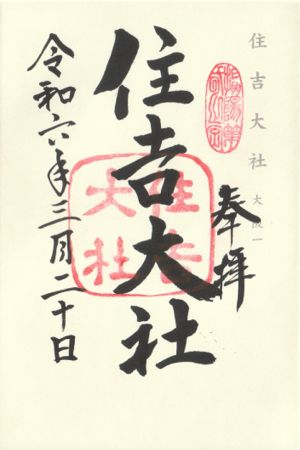 住吉大社 大阪一
奉拝
住吉大社
住吉大社
令和六年三月二十日